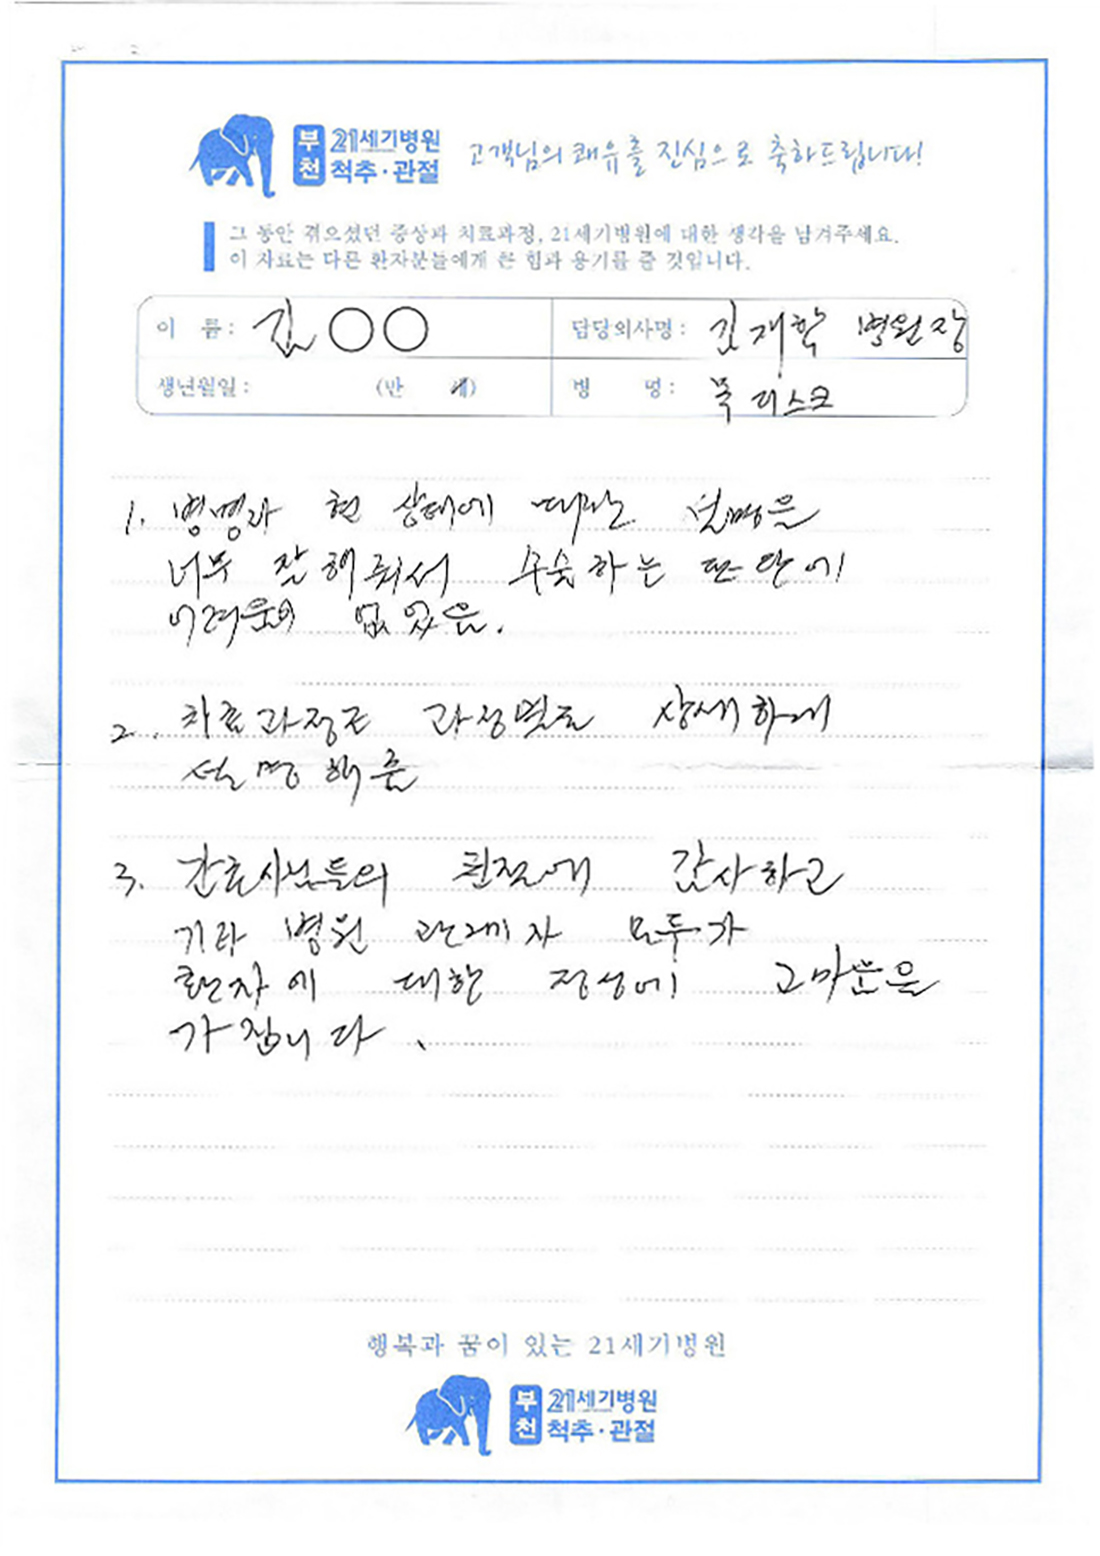 부천 21세기병원 척추·관절 고객님의 쾌유를 진심으로 축하드립니다!
그 동안 겪으셨던 증상과 치료과정, 21세기병원에 대한 생각을 남겨주세요.
이 자료는 다른 환자분들에게 큰 힘과 용기를 줄 것입니다.
이 름 : 김○○ 담당의사명 : 김재학 병원장
생년월일 : (만 세) 병 명 : 목 디스크
1. 병명과 현 상태에 따라는 설명을
너무 잘 해줘서 수술하는 판단에
어려움이 없었음.
2. 치료과정도 과정별로 상세하게
설명해줌
3. 간호사님들의 친절에 감사하고
기타 병원 관계자 모두가
환자에 대한 정성에 고마움을
가집니다.
행복과 꿈이 있는 21세기병원
부천 21세기병원 척추·관절